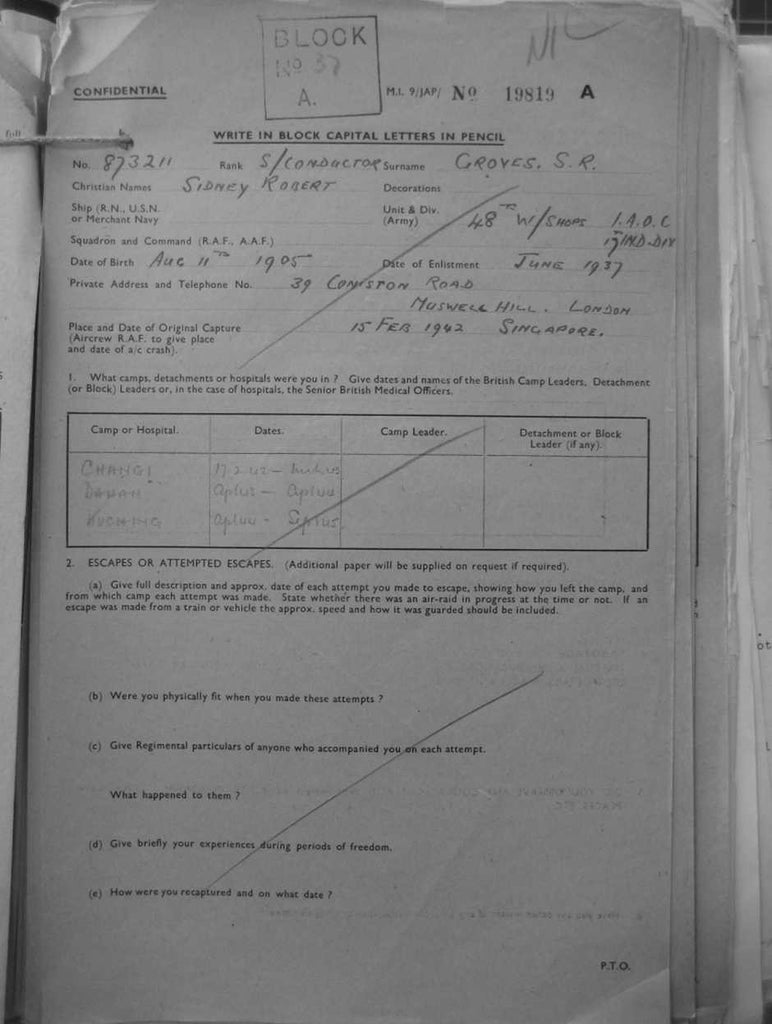 BLOCK
No 37
A.
CONFIDENTIAL
M.I. 9/JAP/ No 19819 A
WRITE IN BLOCK CAPITAL LETTERS IN PENCIL
No. 873211 Rank S/CONDUCTOR Surname GROVES. S.R.
Christian Names SIDNEY ROBERT Decorations
Ship (R.N., U.S.N. or Merchant Navy Unit & Div. (Army) 48TH W/SHOPS I.A.O.C
Squadron and Command (R.A.F., A.A.F.) 17 IND-DIV
Date of Birth AUG 11TH 1905 Date of Enlistment JUNE 1937
Private Address and Telephone No. 39 CONISTON ROAD
MUSWELL HILL. LONDON
Place and Date of Original Capture 15 FEB 1942 SINGAPORE.
(Aircrew R.A.F. to give place
and date of a/c crash).
1. What camps, detachments or hospitals were you in ? Give dates and names of the British Camp Leaders, Detachment
(or Block) Leaders or, in the case of hospitals, the Senior British Medical Officers.
Camp or Hospital. Dates. Camp Leader. Detachment or Block
Leader (if any).
CHANGI 17.2.42 –
KUCHING
2. ESCAPES OR ATTEMPTED ESCAPES. (Additional paper will be supplied on request if required).
(a) Give full description and approx. date of each attempt you made to escape, showing how you left the camp, and
from which camp each attempt was made. State whether there was an air-raid in progress at the time or not. If an
escape was made from a train or vehicle the approx. speed and how it was guarded should be included.
(b) Were you physically fit when you made these attempts ?
(c) Give Regimental particulars of anyone who accompanied you on each attempt.
What happened to them ?
(d) Give briefly your experiences during periods of freedom.
(e) How were you recaptured and on what date ?
P.T.O.